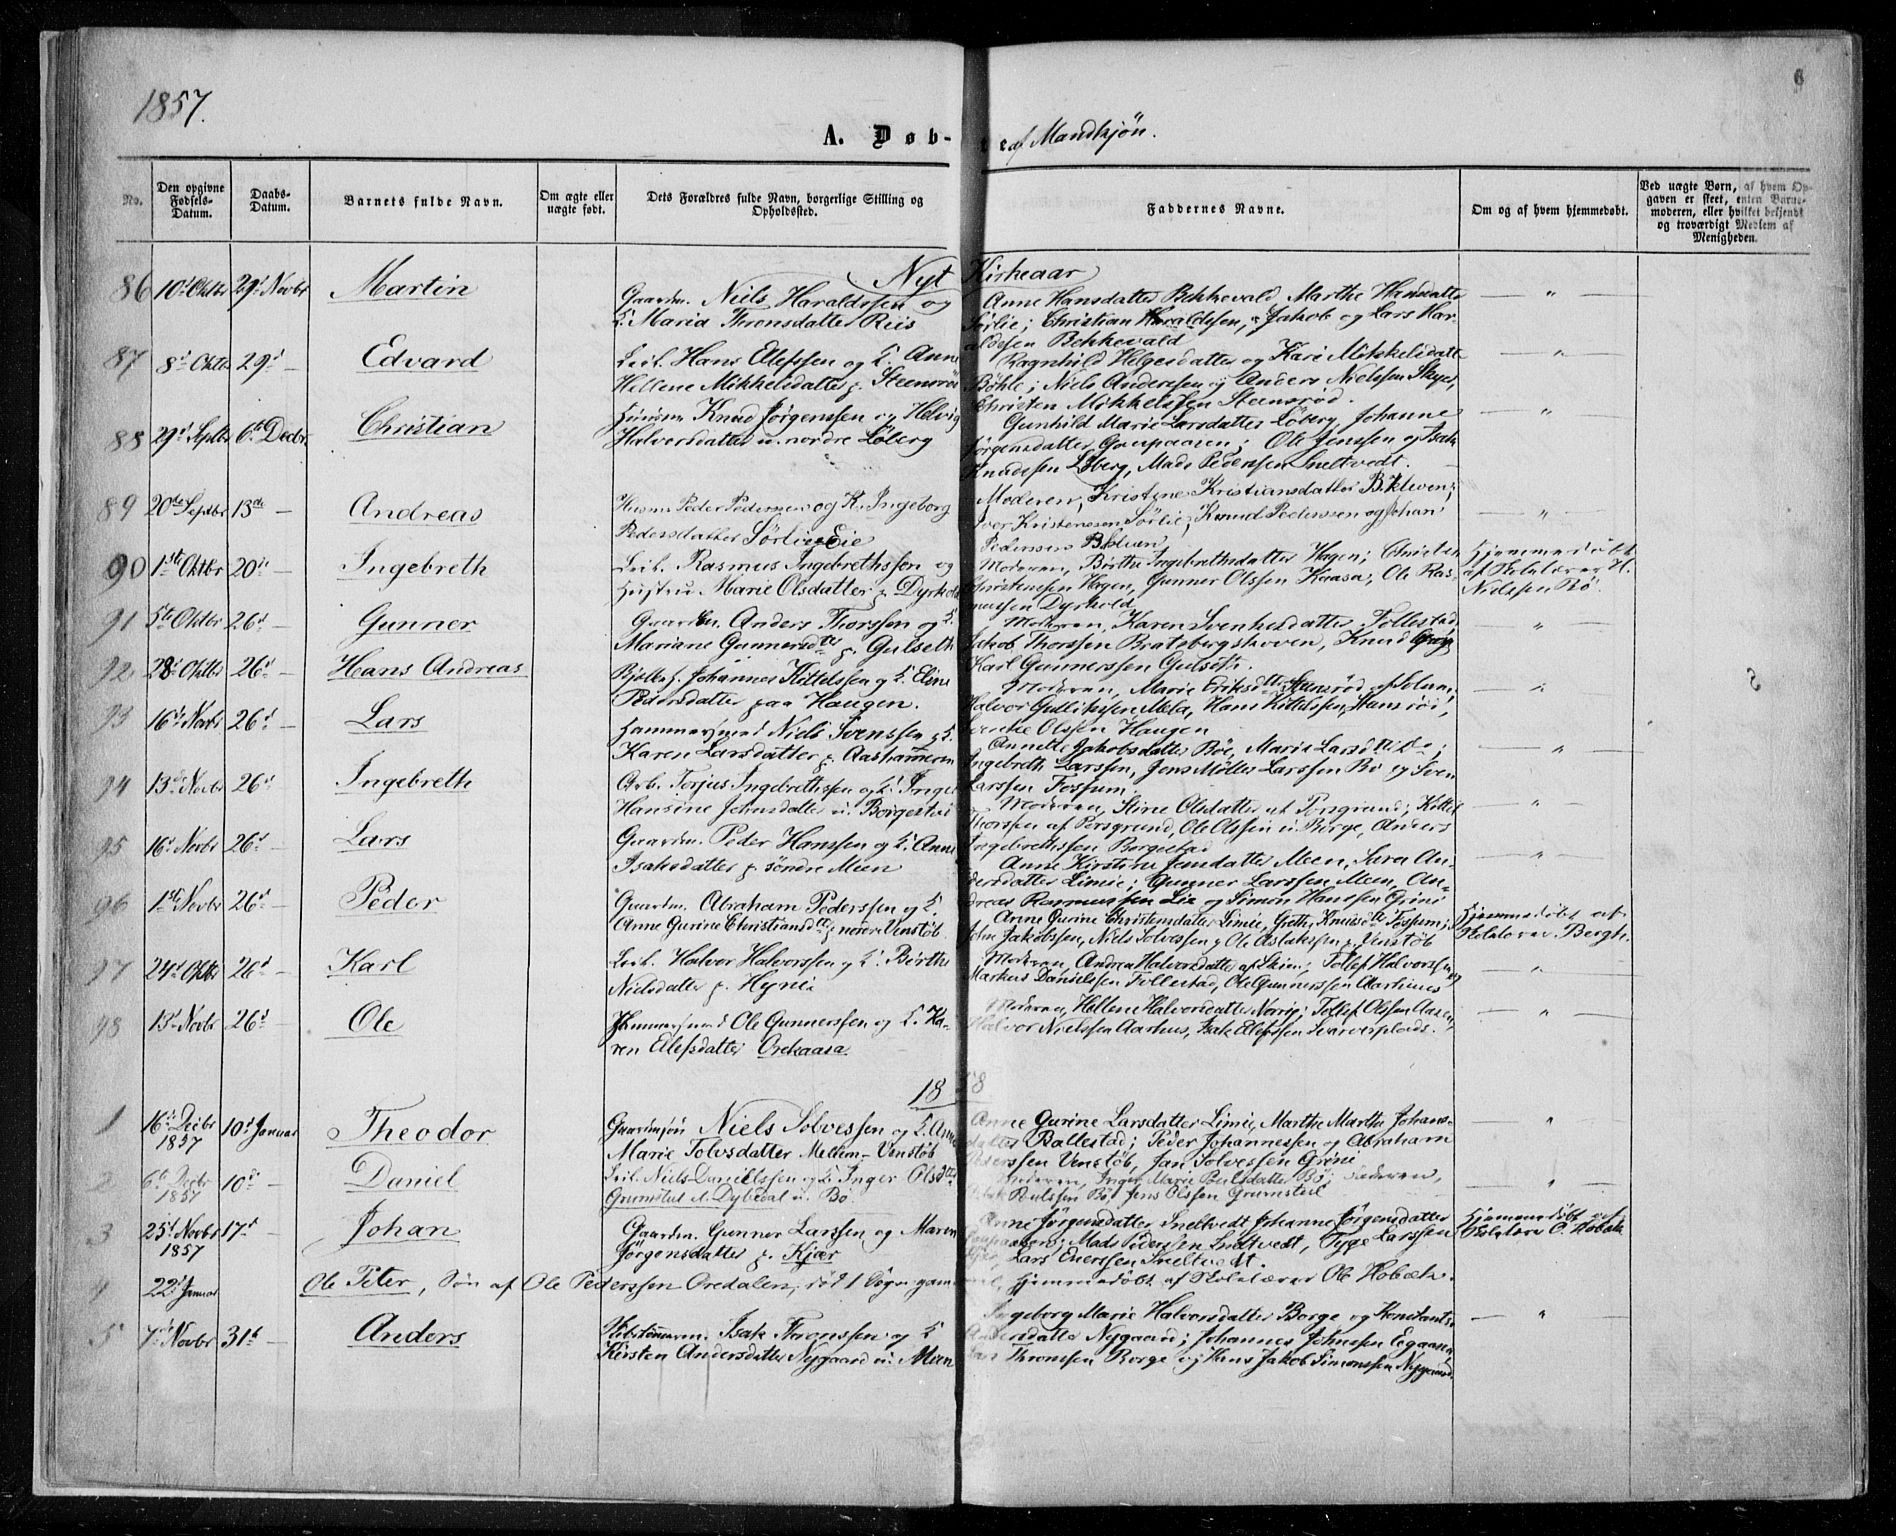 1857.
6
A. Døb-
te af Mandkjøn.
No.
Den opgivne Fødsels-Datum.
Daabs-Datum.
Barnets fulde Navn.
Om ægte eller uægte født.
Dets Forældres fulde Navn, borgerlige Stilling og Opholdssted.
Faddernes Navne.
Om og af hvem hjemmedøbt.
Ved uægte Børn, af hvem Opgaven er skeet, enten Barnemoderen, eller hvilket bekjendt og troværdigt Medlem af Menigheden.
Nyt Kirkeaar
86 10d Oktbr 29d Novbr Martin
Gaardm. Niels Haraldssen og
K. Maria Thronsdatter Riis
Anne Hansdatter Bekkevald Marthe Hansdatter
Sørlie; Christian Haraldssen, Jakob og Lars Har-
aldssen Bekkevald
— " —
87 8d Oktbr 29d — Edvard
Leil. Hans Ellefssen og K. Anne
Hellene Mikkelsdatter p. Steensrød
Ragnhild Helgesdatter og Kari Mikkelsdatter
Bøhle; Niels Anderssen og Anders Nielssen Skyer,
Christen Mikkelssen Steensrød.
— " —
88 29d Septbr 6te Decbr Christian
Huusm Knud Jørgenssen og Helvig
Halvorsdatter u. nordre Løberg
Gunhild Marie Larsdatter Løberg, Johanne
Jørgensdatter Gaupaasen; Ole Jenssen og Isak
Knudssen Løberg, Mads Pederssen Sneltvedt.
— " —
89 20de Septbr 13de — Andreas
Husm. Peder Pederssen og K. Ingeborg
Pedersdatter Sørlie Eie
Moderen, Kristine Kristiansdatter
Iver Kristenssen Sørlie, Knud Pederssen og Johan
Pederssen
— " —
90 1ste Oktbr 20de — Ingebreth
Leil. Rasmus Ingebrethssen og
Hustru Marie Olsdatter p. Dyrkold
Moderen, Børthe Ingebrethsdatter Hagen; Christen
Christenssen Hagen, Gunner Olssen Kaasa, Ole Ras-
mussen Dyrkold
Hjemmedøbt
af Skolelærer H.
Nielssen Bø.
91 5te Oktbr 26d — Gunner
Gaardm. Anders Thorssen og K.
Mariane Gunnersdtr p. Gulseth
Moderen, Karen Svenkesdatter Follestad
Jakob Thorssen Bratsbergskoven, Knud og
Karl Gunnerssen Gulseth.
— " —
92 28d Oktbr 26d — Hans Andreas
Johannes Kittelssen og K. Eline
Pedersdatter paa Haugen.
Moderen, Marie Eriksdtr Stensrød af Solum;
Halvor Gulliksen Mela, Hans Kittelssen Stensrød,
Svenke Olssen Haugen
— " —
93 16d Novbr 26d — Lars
Hammersmed Niels Svenssen og K.
Karen Larsdatter p. Aashammeren
Annette Jakobsdatter Bøe, Maria Larsdtr Do;
Ingebreth Larssen, Jens Møller Larssen Bø og Sven
Larssen Fossum.
— " —
94 13de Novbr 26d — Ingebreth
Arb. Torjus Ingebrethssen og K. Inger
Hansine Johnsdatter u. Borgestad
Moderen, Stine Olsdatter af Porsgrund; Kittel
Thorssen af Porsgrund, Ole Olssen u. Borge, Anders
Ingebrethssen Borgestad
— " —
95 16d Novbr 26d — Lars
Gaardm. Peder Hanssen og K. Anne
Isaksdatter p. søndre Meen
Anne Kirstine Jensdatter Meen, Sara An-
dersdatter Limie; Gunner Larssen Meen, An-
dreas Rasmussen Lie og Simon Hanssen Grini
— " —
96 1ste Novbr 26d — Peder
Gaardm. Abraham Pederssen og K.
Anne Gurine Christiansdtr p. nordre Venstøb
Anne Gurine Christensdatter Limie, Grethe Knudsdtr Fossum;
John Jakobssen, Niels Solvessen og Ole Aslakssen p. Venstøb
Hjemmedøbt af
Skolelærer Bergh.
97 24d Oktbr 26d — Karl
Leil. Halvor Halvorssen og K. Børthe
Nielsdatter p. Hyni
Moderen, Andrea Halvorsdatter af Skien; Tollef Halvorssen og
Markus Danielssen Follestad, Ole Gunnerssen Aarhuus
— " —
98 13de Novbr 26d — Ole
Hammersmed Ole Gunnerssen og K. Ka-
ren Ellefsdatter Orekaasa.
Moderen, Hellene Halvorsdatter; Tollef Olssen Aasen,
Halvor Nielssen Aarhus, Isak Ellefssen Svarverplads.
— " —
1858
1 16d Decbr 1857 10d Januar Theodor
Gaardmsøn Niels Solvessen og K. Anne
Marie Tolvsdatter Mellem-Venstøb
Anne Gurine Larsdatter Limie, Marthe Marthe Johans-
datter Ballestad; Peder Johannessen og Abraham
Pederssen Venstøb, Jan Solvessen Grini
"
2 6te Decbr 1857 10d — Daniel
Leil. Niels Danielssen og K. Inger Olsdtr
Grumstad Dybedal u. Bø
Moderen, Inger Marie Bø; Faderen,
Bø, Jens Olssen Grumstad
— " —
3 25d Novbr 1857 17d — Johan
Gaardm. Gunner Larssen og Maren
Jørgensdatter p. Kjær
Anne Jørgensdatter Sneltvedt Johanne Jørgensdatter
Gaupaasen; Mads Pederssen Sneltvedt, Tyge Larssen
Kjær, Lars Everssen Sneltvedt.
Hjemmedøbt af
Skolelærer O. Hobæk
4 22d Januar Ole Peter, Søn af Ole Pederssen Oredalen, død 1 Døgn gam-
mel, Hjemmedøbt af Skolelærer Ole Hobæk.
5 7de Novbr 31d — Anders
Isak Thronssen og K.
Kirsten Andersdatter Nygaard u. Meen
Ingeborg Marie Halvorsdatter Borge og Konstantse
Andersdatter Nygaard; Johannes Johnssen Eegaasen,
Jan Thronssen Borge og Hans Jakob Simonssen Nygaard.
— " —